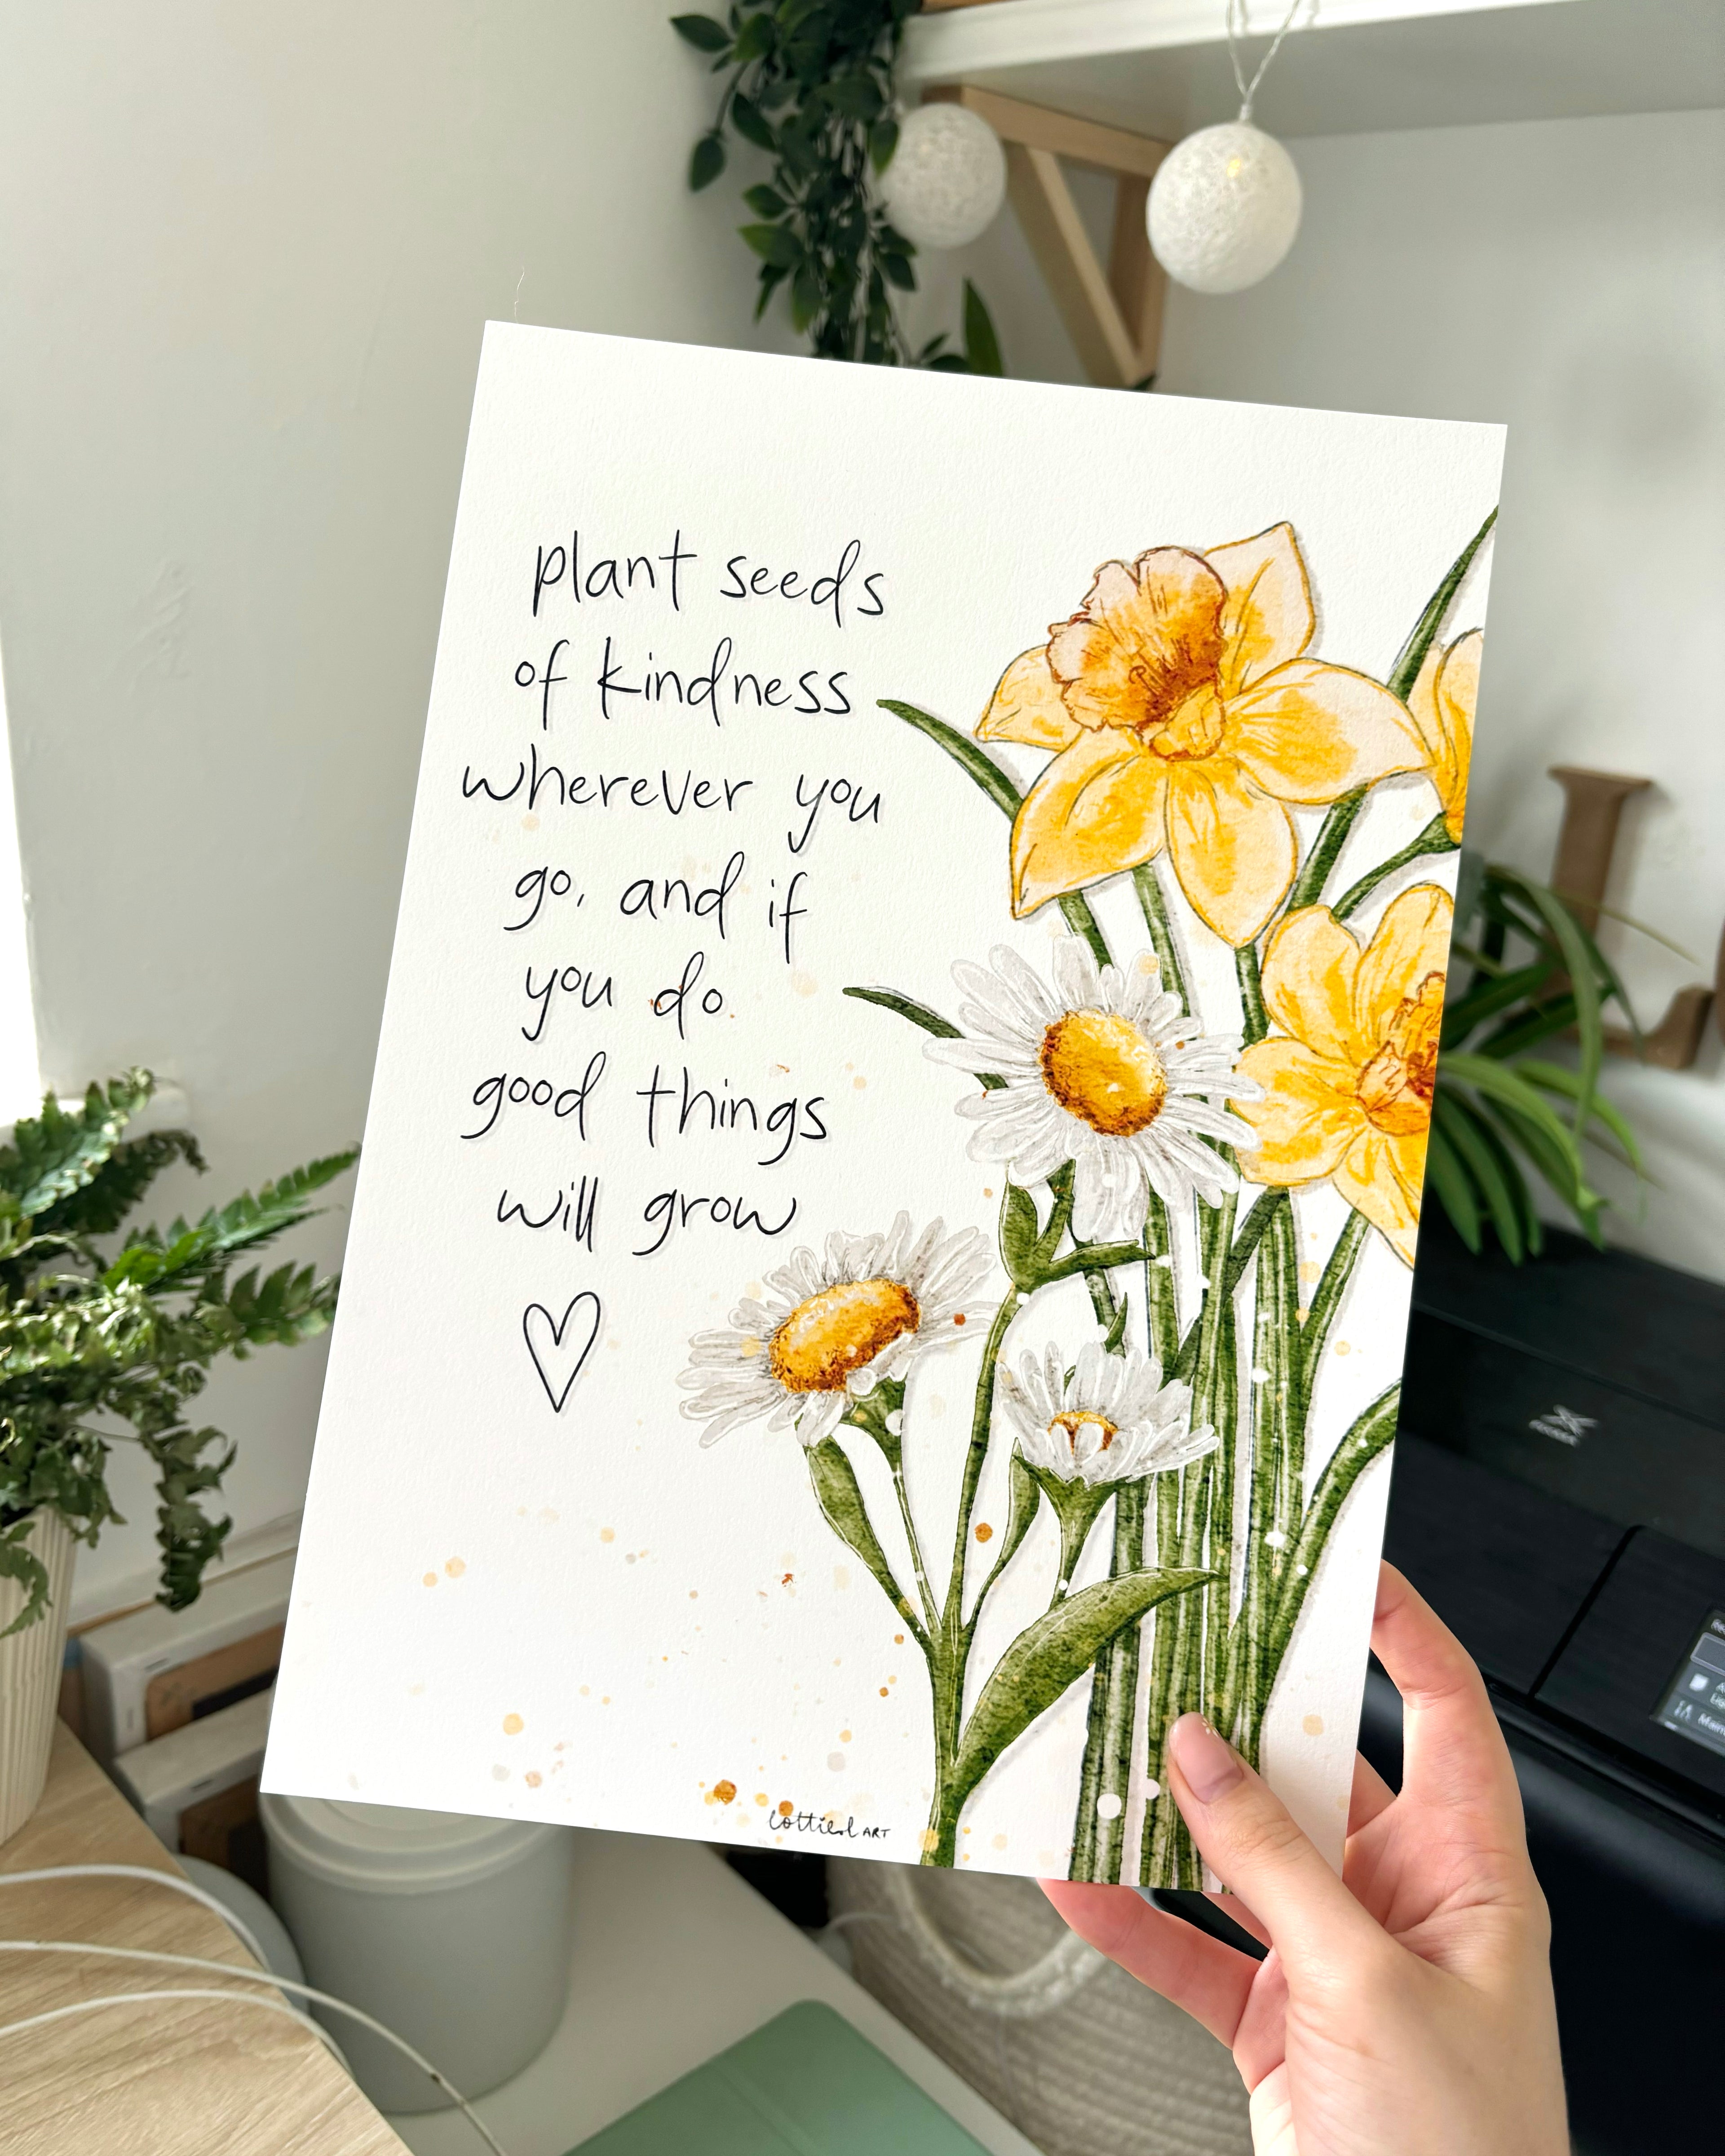 plant seeds
of kindness
wherever you
go, and if
you do
good things
will grow
lottie.l ART